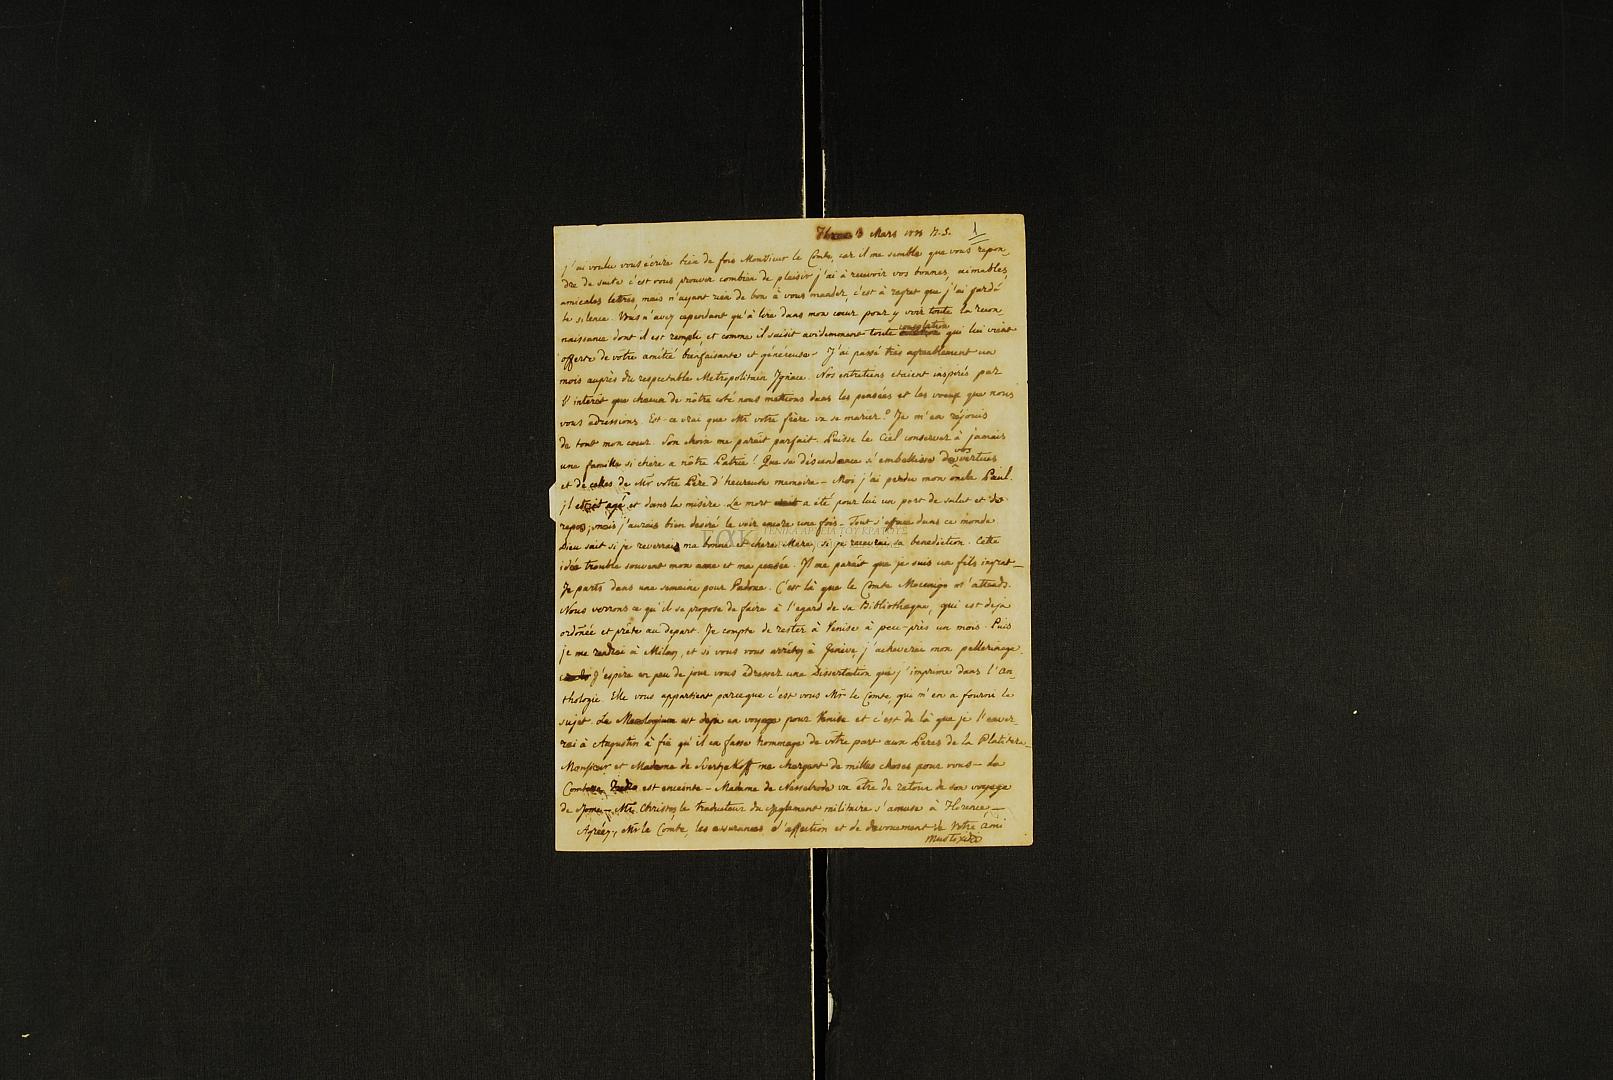 3 Mars N.S. 1
j'ai voulu vous écrire bien de fois Monsieur le Comte, car il me semble que vous répon-
dre de suite c'est vous prouver combien de plaisir j'ai à recevoir vos bonnes, aimables,
amicales lettres, mais n'ayant rien de bon à vous mander, c'est à regret que j'ai gardé
le silence. Vous n'avez cependant qu'à lire dans mon cœur pour y voir toute la recon-
naissance dont il est remplé, et comme il saisit avidemment toute consolation qui lui vient
offerte de vôtre amitié bienfaisante et généreuse - J'ai passé très agreablement un
mois auprès du respectable Metropolitain Ignace. Nos entretiens etaient inspirés par
l'interêt que chacun de nôtre coté nous mettions dans les pensées et les voeux que nous
vous adressions. Est-ce vrai que Mr votre frère va se marier? Je m'en réjouis
de tout mon coeur. Son choix me paraît parfait. Puisse le Ciel conserver à jamais
une famille si chère a nôtre Patrie! Que sa déscendence s'embellisse de vos vertues
et de celles de Mr votre Père d'heureuse memoire - Moi j'ai perdu mon oncle Paul.
jl etoit agé et dans la misère. La mort a été pour lui un port de salut et de
repos; mais j'aurais bien desiré le voir encore une fois - Tout s'efface dans ce monde
Dieu sait si je reverrai ma bonne et chere Mere, si je recevrai sa benediction. Cette
idée trouble souvent mon ame et ma pensée. Il me paraît que je suis un fils ingrat -
Je parts dans une semaine pour Padoue. C'est là que le Comte Mocenigo m'attends.
Nous verrons ce qu'il se propose de faire à l'egard de sa Bibliothèque, qui est deja
ordonée et prête au depart. Je compte de rester à Venise à peu-près un mois. Puis
je me rendrai à Milan, et si vous vous arrêtez à Genève j'acheverai mon pellerinage.
J'espère en peu de jour vous adresser une Dissertation que j'imprime dans l'An-
thologie. Elle vous appartient parceque c'est vous Mr le Comte, qui m'en a fourni le
sujet. Le Menologium est deja en voyage pour Venise et c'est de là que je l'enver-
rai à Augustin à fin qu'il en fasse hommage de vôtre part aux Peres de la Platitera -
Monsieur et Madame de Svertzkoff me chargent de milles choses pour vous - La
Comtesse est enceinte - Madame de Nesselrode va être de retour de son voyage
de Rome - Mr Christoy le traducteur du Reglement militaire s'amuse à Florence -
Agréez, Mr le Comte, les assurances d'affection et de devouement de Votre Ami
Mustoxidi
ΓΕΝΙΚΑ ΑΡΧΕΙΑ ΤΟΥ ΚΡΑΤΟΥΣ